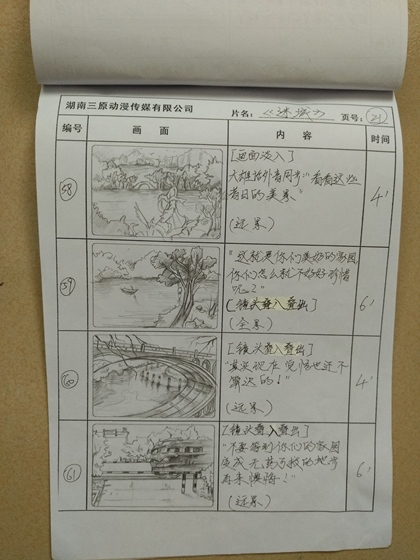 湖南三原动漫传媒有限公司 片名: 《迷城》 页号: 21
编号 画面 内容 时间
58
[画面淡入]
大雄话外音同步"看看这些
昔日的美景"
(远景)
4'
59
"这就是你们美好的家园
你们怎么就不好好珍惜
呢?"
[镜头叠入叠出]
(全景)
6'
60
[镜头叠入叠出]
"其实现在觉悟也还不
算迟的!"
(远景)
4'
61
[镜头叠入叠出]
"不要等到你们的家园
变成无药可救的地步
再来懊悔!"
(远景)
6'